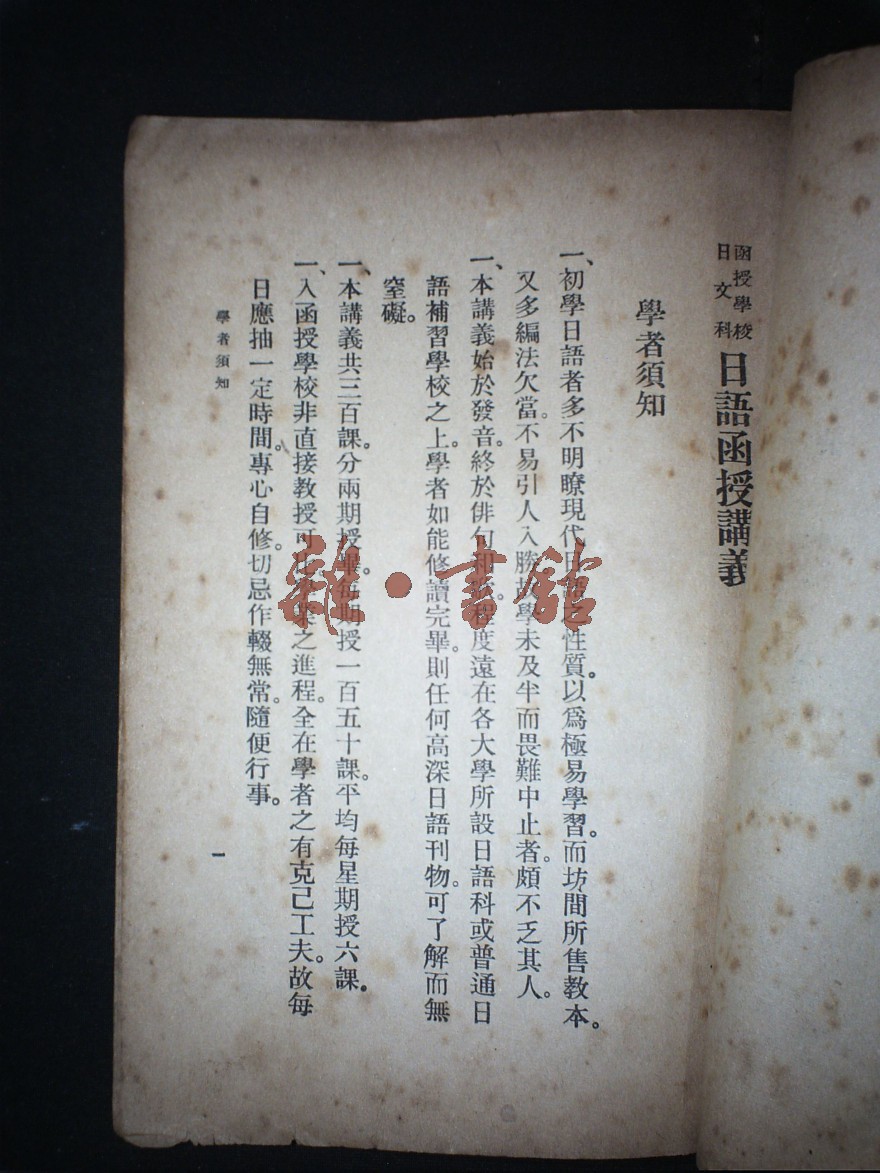 函授學校
日文科
日語函授講義
學者須知
一、初學日語者多不明瞭現代日語之性質。以爲極易學習。而坊間所售教本。
又多編法欠當。不易引人入勝故學未及半而畏難中止者。頗不乏其人。
一、本講義始於發音。終於俳句和歌。程度遠在各大學所設日語科或普通日
語補習學校之上。學者如能修讀完畢。則任何高深日語刊物。可了解而無
窒礙。
一、本講義共三百課。分兩期授畢。每期授一百五十課。平均每星期授六課。
一、入函授學校非直接教授可比。學業之進程。全在學者之有克己工夫。故每
日應抽一定時間。專心自修。切忌作輟無常。隨便行事。
學者須知
一
雜·書館